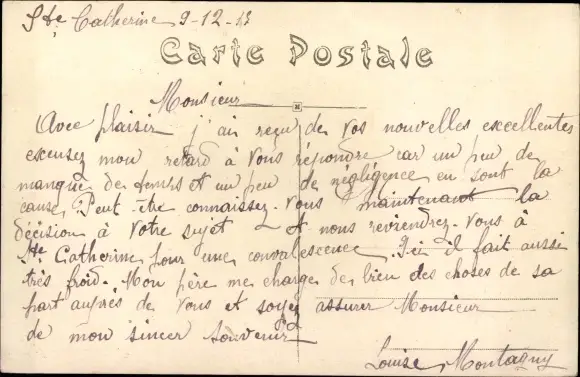 Ste Catherine 9-12-17
Carte Postale
Monsieur
Avec plaisir j'ai reçu de vos nouvelles escellentes
escusez mon retard à vous répondre car un peu de
manque de temps et un peu de négligence en sont la
cause, Peut être connaissez-vous maintenant la
décision à votre sujet et nous reviendrez-vous à
Ste Catherine pour une convalescence Ici il fait aussi
très froid. Mon père me charge de bien des choses de sa
part aupres de vous et soyez assurer Monsieur
de mon sincer souvenir
Louise Montagny